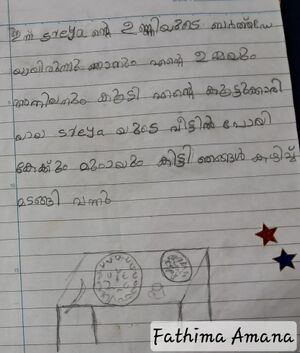 ഇന്ന് sreya ന്റെ ഉണ്ണിയുടെ ബർത്ത്ഡേ
യായിരുന്നു ഞാനും എന്റെ ഉമ്മയും
അനിയനും കൂടി എന്റെ കൂട്ടുക്കാരി
യായ sreya യുടെ വീട്ടിൽ പോയി
കേക്കും മുഠായും കിട്ടി ഞങ്ങൾ കഴിച്ച്
മടങ്ങി വന്നു
Fathima Amana